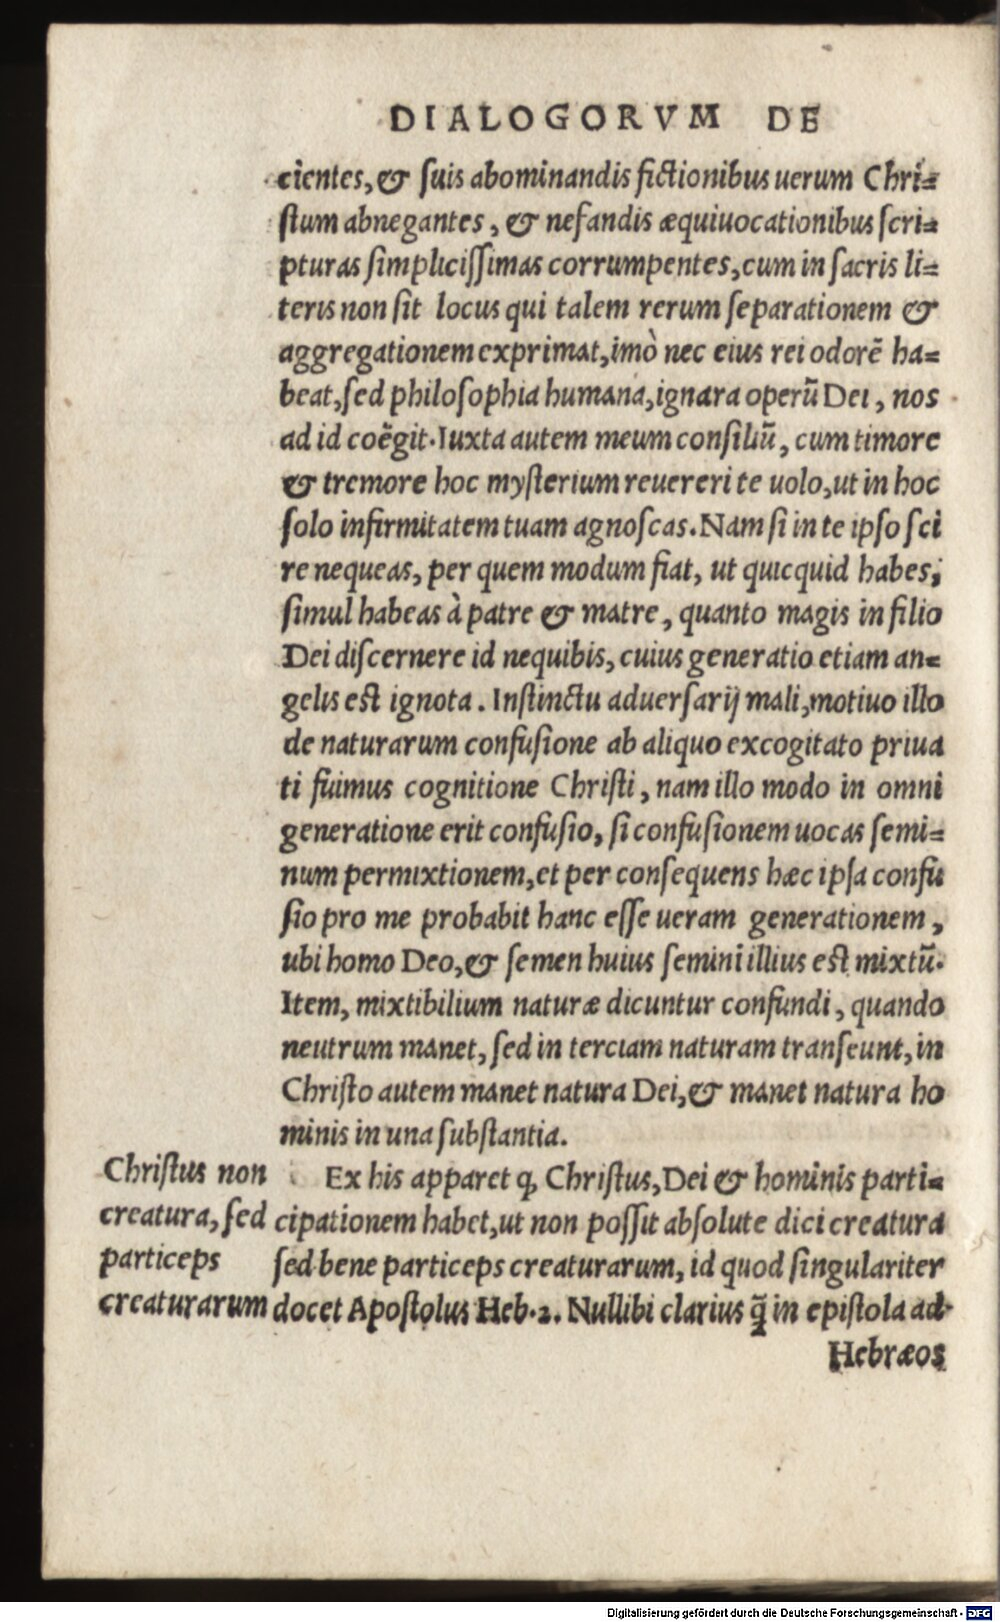 DIALOGORVM DE
cientes, & suis abominandis fictionibus uerum Chri=
stum abnegantes, & nefandis æquiuocationibus scri=
pturas simplicissimas corrumpentes, cum in sacris li=
teris non sit locus qui talem rerum separationem &
aggregationem exprimat, imò nec eius rei odorē ha=
beat, sed philosophia humana, ignara operū Dei, nos
ad id coēgit. Iuxta autem meum consiliū, cum timore
& tremore hoc mysterium reuereri te uolo, ut in hoc
solo infirmitatem tuam agnoscas. Nam si in te ipso sci
re nequeas, per quem modum fiat, ut quicquid habes,
simul habeas à patre & matre, quanto magis in filio
Dei discernere id nequibis, cuius generatio etiam an=
gelis est ignota. Instinctu aduersarij mali, motiuo illo
de naturarum confusione ab aliquo excogitato priua
ti fuimus cognitione Christi, nam illo modo in omni
generatione erit confusio, si confusionem uocas semi=
num permixtionem, et per consequens hæc ipsa confu
sio pro me probabit hanc esse ueram generationem,
ubi homo Deo, & semen huius semini illius est mixtū.
Item, mixtibilium naturæ dicuntur confundi, quando
neutrum manet, sed in terciam naturam transeunt, in
Christo autem manet natura Dei, & manet natura ho
minis in una substantia.
Ex his apparet ꝙ Christus, Dei & hominis parti=
cipationem habet, ut non possit absolute dici creatura
sed bene particeps creaturarum, id quod singulariter
docet Apostolus Heb. 2. Nullibi clarius q̄ in epistola ad
Hebræos
Christus non
creatura, sed
particeps
creaturarum
Digitalisierung gefördert durch die Deutsche Forschungsgemeinschaft - DFG